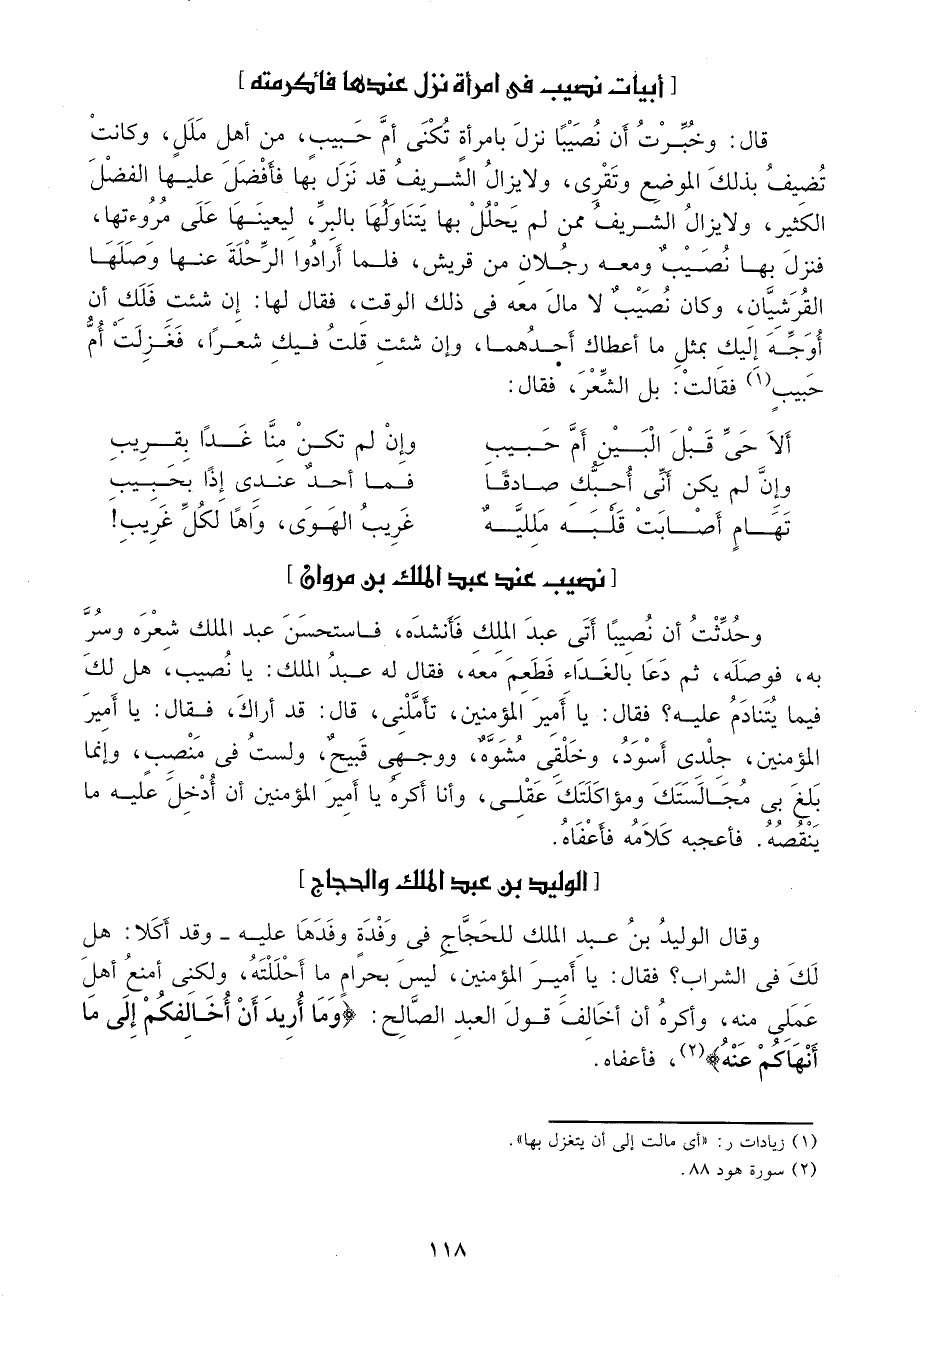 [ أبيات نصيب فى امرأة نزل عندها فأكرمته ]
قال: وخُبِّرْتُ أن نُصَيْبًا نزلَ بامرأة تُكْنَى أمَّ حَبيب، من أهل مَلَل، وكانتْ
تُضيفُ بذلكَ الموضع وتَقْرِى، ولايزالُ الشريفُ قد نَزَلَ بها فأفْضَلَ عليها الفضْلَ
الكثير، ولايزالُ الشريفُ ممن لم يَحْلُلْ بها يَتَناوَلُهَا بالبِرِّ، ليعينَها عَلَى مُرُوءتها،
فنزلَ بها نُصَيْبٌ ومعه رجُلان من قريش، فلما أرادُوا الرِّحْلَةَ عنها وصَلَهَا
القُرَشيَّان، وكان نُصَيْبٌ لا مالَ معه فى ذلك الوقت، فقال لها: إن شئت فَلَك أن
أُوَجِّهَ إليك بمثل ما أعطاك أحدُهما، وإن شئت قلتُ فيك شعرًا، فَغَزِلَتْ أُمُّ
حَبيبٍ(١) فقالتْ: بل الشِّعْرَ، فقال:
ألاَ حَىِّ قَبْلَ الْبَيْنِ أمَّ حَبيبِ وإنْ لم تكنْ منَّا غَدًا بقَريبِ
وإنْ لم يكن أنِّى أُحبُّك صادقًا فما أحدٌ عندى إذًا بحَبيبِ
تَهَامٍ أصَابَتْ قَلْبَه مَلَليَّةٌ غَريبُ الهَوَى، وَاهًا لكُلِّ غَريبِ!
[ نصيب عند عبد الملك بن مروان ]
وحُدِّثْتُ أن نُصيبًا أتَى عبدَ الملك فَأنشده، فاستحسَنَ عبد الملك شعْرَه وسُرَّ
به، فوصلَه، ثم دَعَا بالغَدَاء فَطَعِمَ معه، فقال له عبدُ الملك: يا نُصَيب، هل لكَ
فيما يُتَنادَمُ عليه؟ فقال: يا أميرَ المؤمنين، تأمَّلْنى، قال: قد أراكَ، فقال: يا أميرَ
المؤمنين، جلْدى أسْوَدُ، وخَلْقى مُشَوَّهٌ، ووجهى قَبيحٌ، ولستُ فى مَنْصب، وإنما
بَلَغَ بى مُجَالَستَكَ ومؤاكَلَتَكَ عَقْلى، وأنا أكرهُ يا أميرَ المؤمنين أن أُدْخلَ عليه ما
يَنْقُصُهُ. فأعجبه كَلاَمُه فأعْفَاهُ.
[ الوليد بن عبد الملك والحجاج ]
وقال الوليدُ بنُ عبد الملك للحَجَّاجِ فى وَفْدَة وفَدَهَا عليه ـ وقد أكَلا: هل
لَكَ فى الشراب؟ فقال: يا أميرَ المؤمنين، ليسَ بحرام ما أحْلَلْتَهُ، ولكنى أمنعُ أهلَ
عَمَلى منه، وأكرهُ أن أخالفَ قولَ العبد الصَّالحِ: ﴿وَمَا أُرِيدُ أَنْ أُخَالِفَكُمْ إِلَى مَا
أَنْهَاكُمْ عَنْهُ﴾(٢)، فأعفاه.
(١) زيادات ر: «أى مالت إلى أن يتغزل بها».
(٢) سورة هود ٨٨.
١١٨